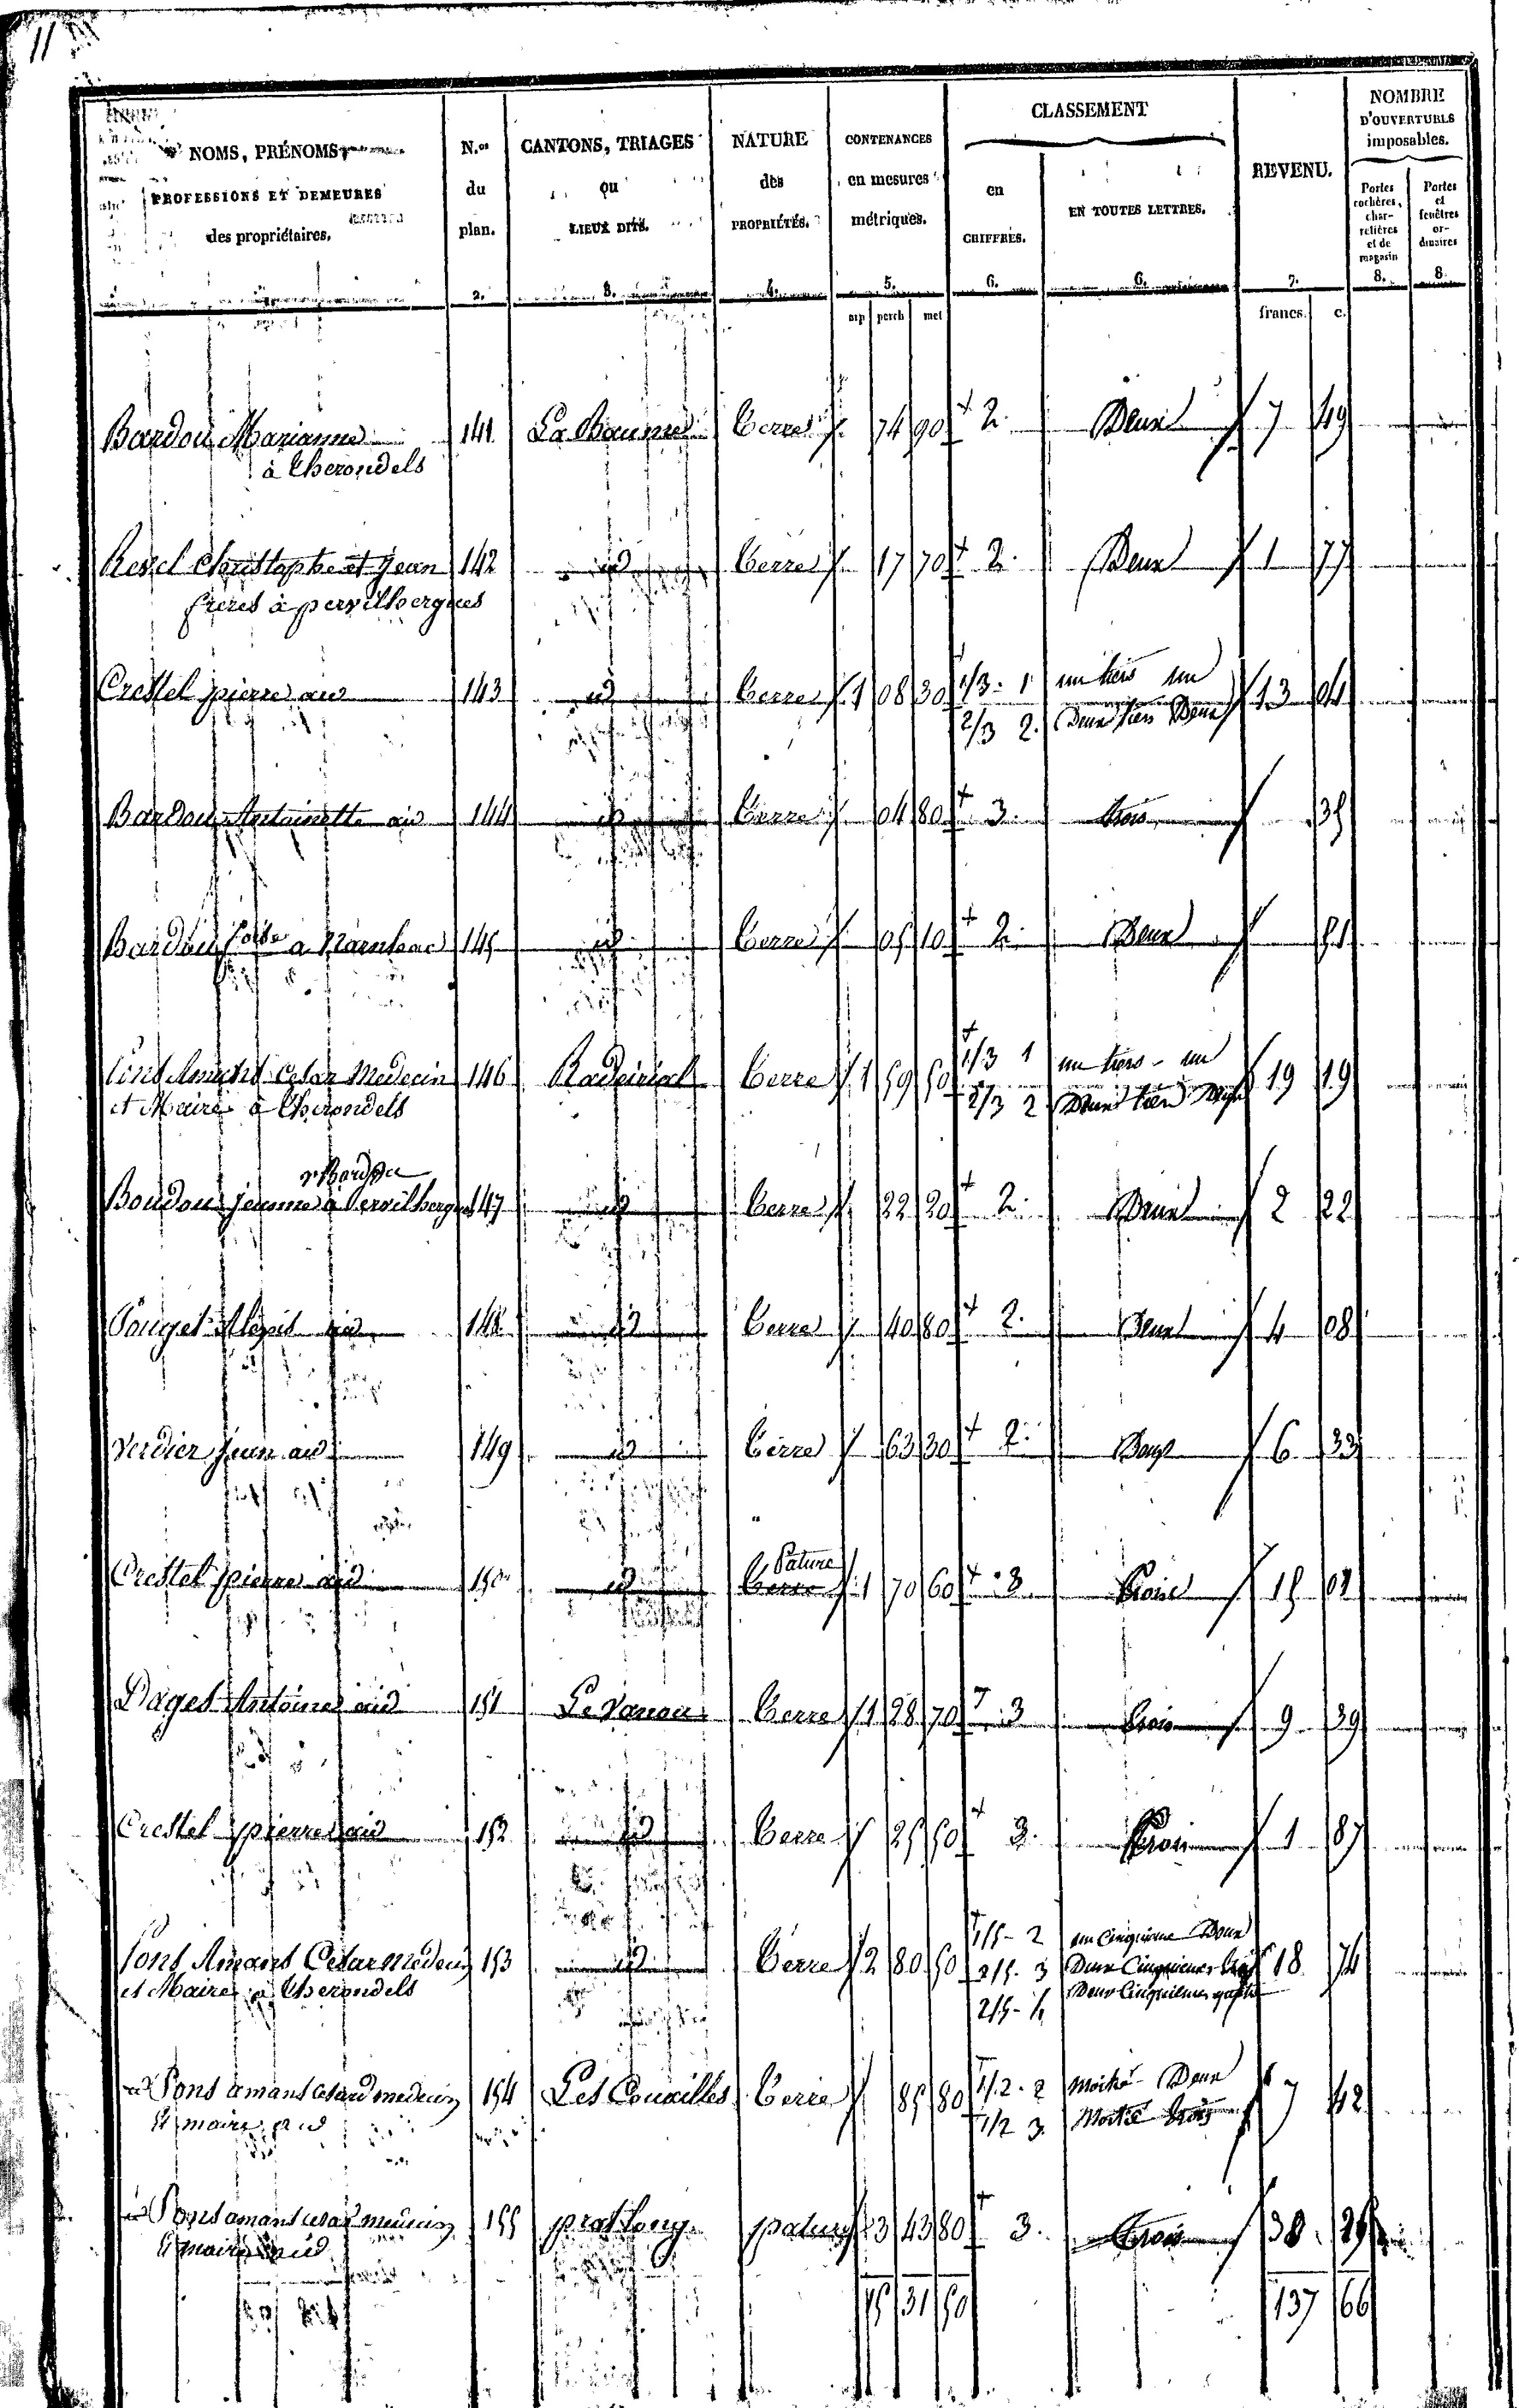 11
NOMS, PRÉNOMS
PROFESSIONS ET DEMEURES
des propriétaires.
N.os du plan.
CANTONS, TRIAGES ou LIEUX DITS.
NATURE des PROPRIÉTÉS.
CONTENANCES en mesures métriques.
CLASSEMENT
en CHIFFRES.
EN TOUTES LETTRES.
REVENU.
NOMBRE D'OUVERTURES imposables.
Portes cochères, charretières et de magasin
Portes et fenêtres ordinaires
2. 3. 4. 5. 6. 6. 7. 8. 8.
arp perch met francs. c.
Bardou Marianne 141 La Baume Terre 74 90 2. Deux 7 49
à Therondels
Revel Christophe et Jean 142 id Terre 17 70 2. Deux 1 77
freres à pervilhergues
Crestel pierre aud 143 id Terre 1 08 30 1/3 - 1 un tiers un 13 04
2/3 2. Deux tiers Deux
Bardou Antoinette aud 144 id Terre 04 80 3. trois 35
Bardou a 145 id Terre 05 10 2. Deux 51
Pons Amans Cesar Medecin 146 Terre 1 59 50 1/3 1 un tiers - un 19 19
et Maire à Therondels 2/3 2 Deux tiers Deux
Boudou à Pervilhergues 147 id Terre 22 20 2. Deux 2 22
Pouget Alexis aud 148 id Terre 40 80 2. Deux 4 08
Verdier Jean aud 149 id Terre 63 30 2. Deux 6 33
Pature
Crestel pierre aud 150 id Terre 1 70 60 3 Trois 15 02
Dages Antoine aud 151 Terre 1 28 70 3 trois 9 39
Crestel pierre aud 152 id Terre 25 50 3. Trois 1 87
Pons Amans Cesar medecin 153 id Terre 2 80 50 1/5 - 2 un Cinquieme Deux 18 74
et Maire à Therondels 2/5. 3 Deux Cinquiemes trois
2/5 - 4 Deux Cinquiemes quatre
Pons amans Cesard medecin 154 Les Couailles Terre 85 80 1/2 - 2 Moitié - Deux 7 42
Et maire aud 1/2 3. Moitié trois
Pons amans cesar medecin 155 prat long pature 3 43 80 3. trois 38 25
Et maire aud
15 31 50 137 66